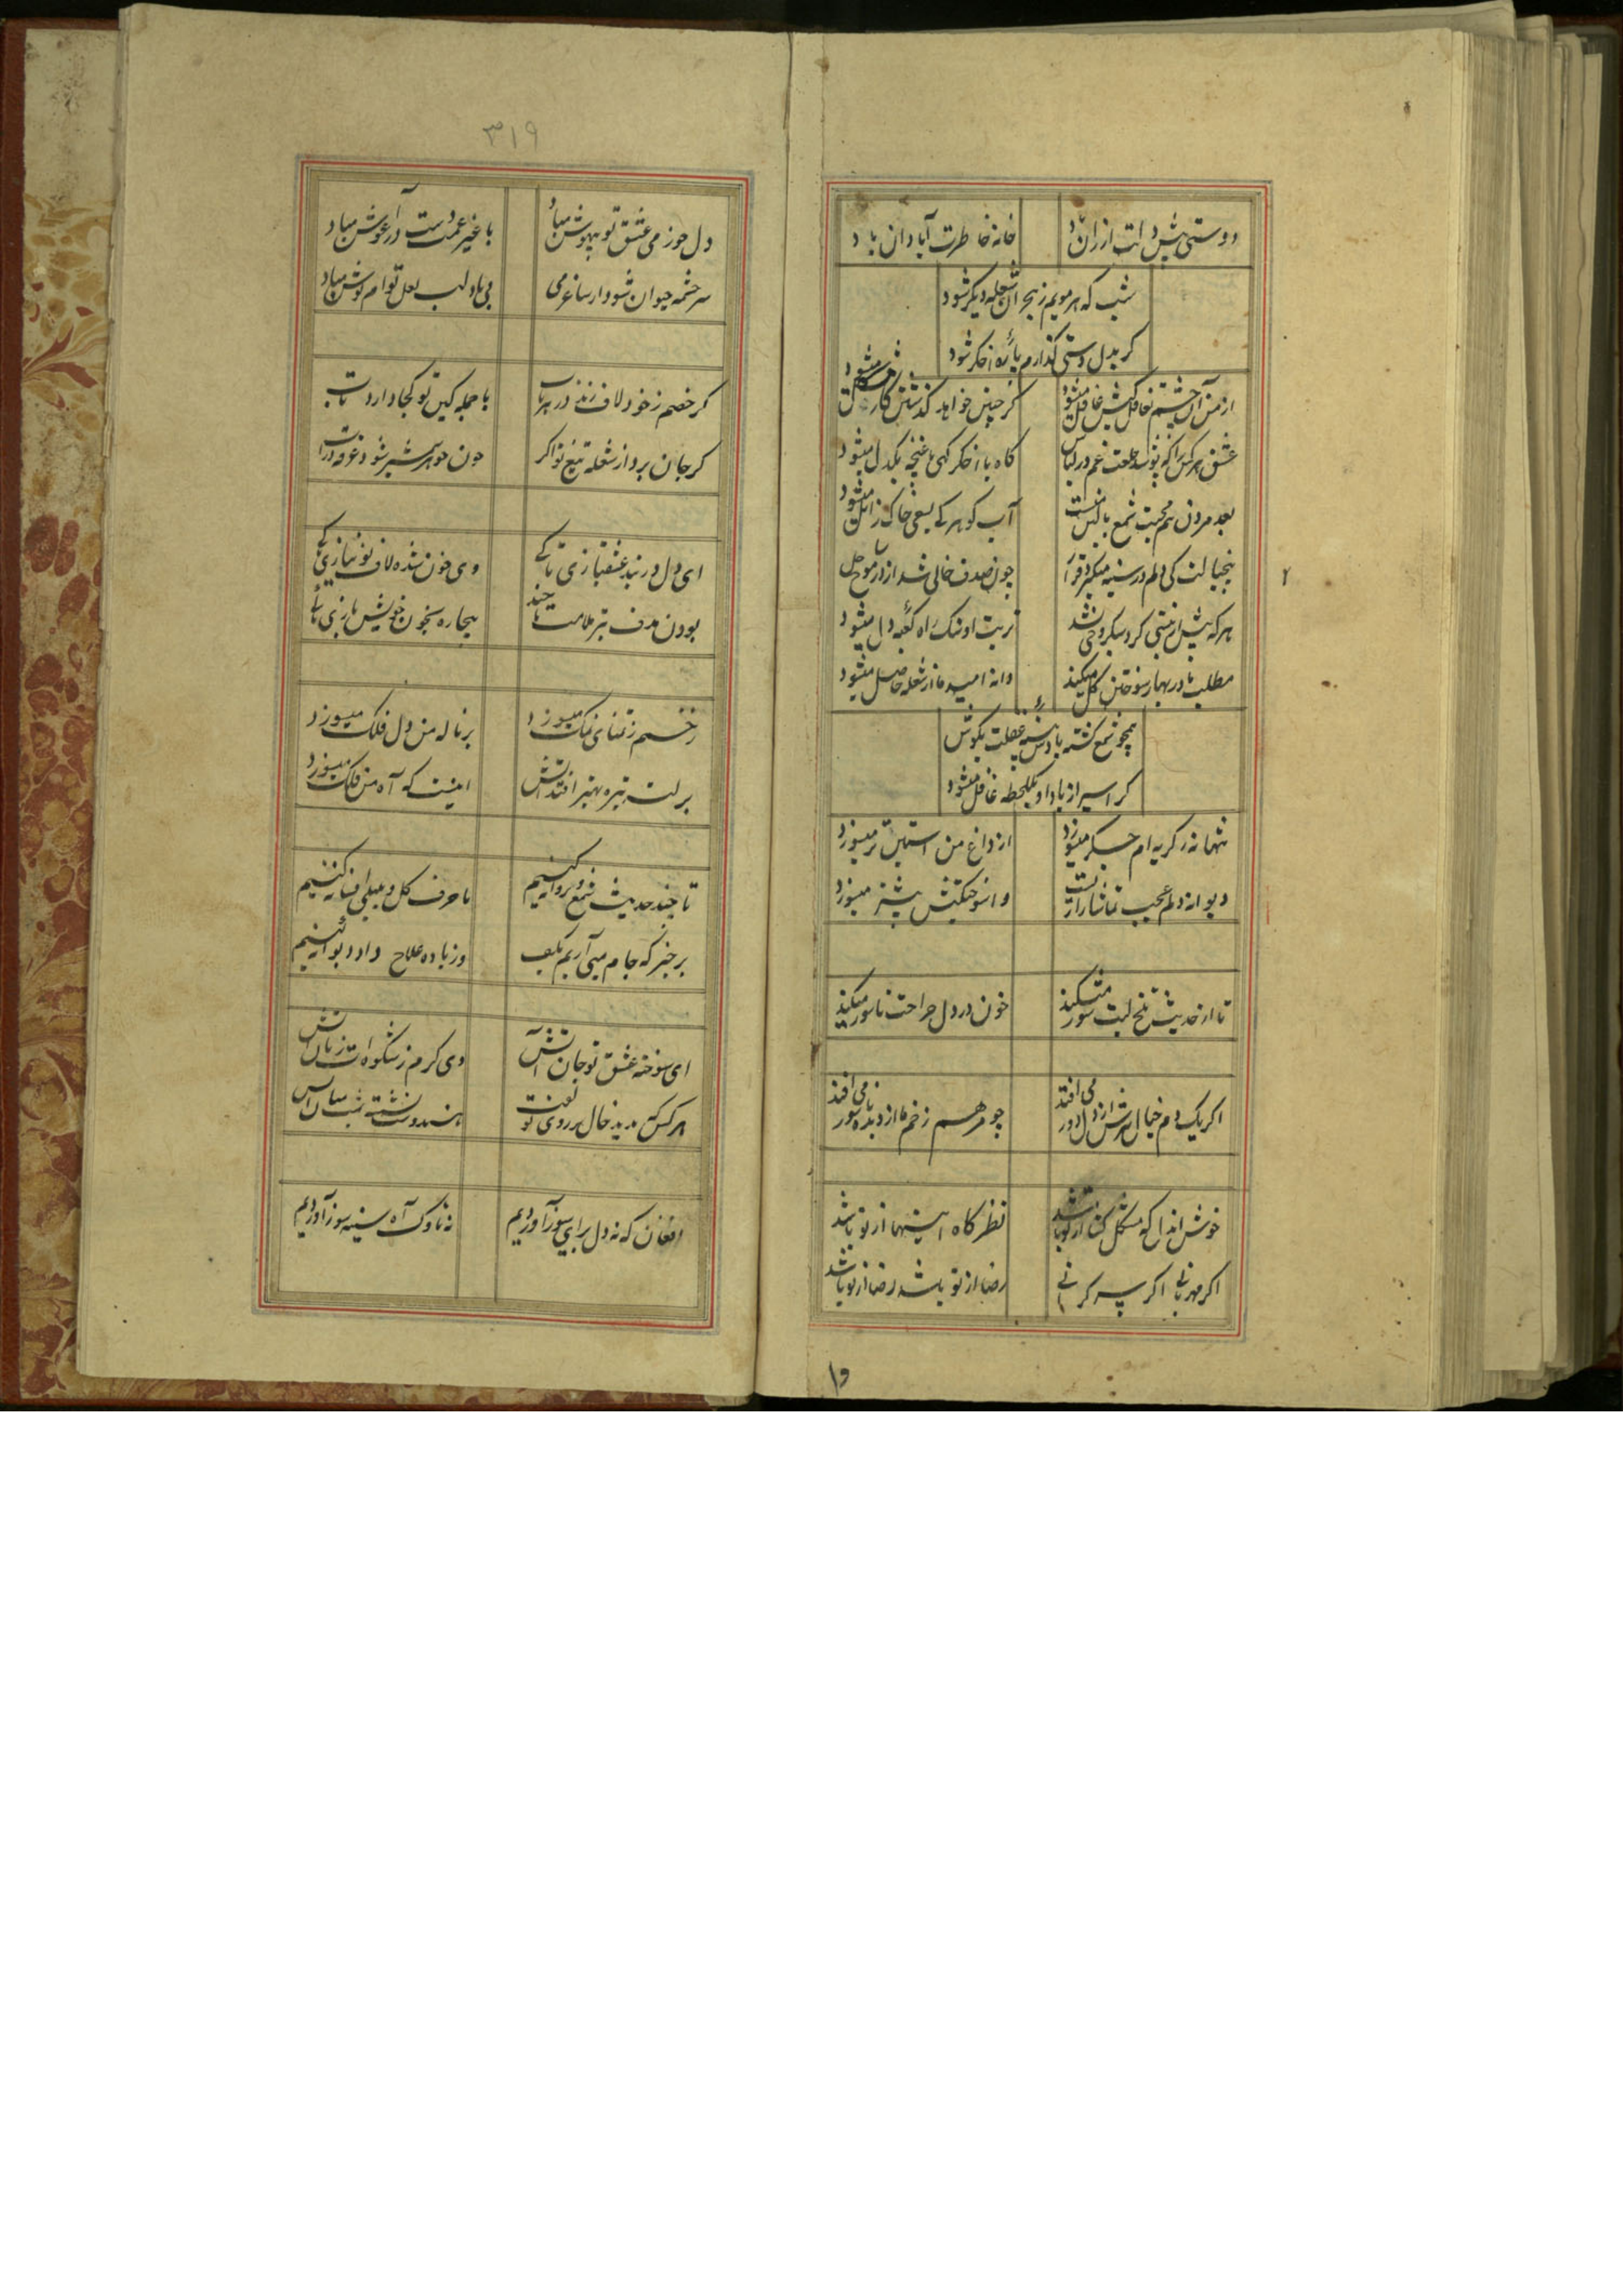 دوستی پیش دلت ارزان باد
خانه خاطرت آبادان باد
شب که هر مویم ز هجران شعله دیگر شود
گر بدل دستی گذارم پاره اخگر شود
از من آن چشم تغافل کیش غافل میشود
گر چنین خواهد گذشتن کار مشکل میشود
عشق هر کس را که پوشد خلعت غم در لباس
گاه با اخگر گهی با غنچه یکدل میشود
بعد مردن هم محبت شمع بالین منست
آب گوهر کی بسعی خاک زائل میشود
بیخیالت کی دلم در سینه میگیرد قرار
چون صدف خالی شد از در
هر که پیش از نیستی گرد سبکروحی نشد
تربت او سنگ راه کعبه دل میشود
مطلب ما در بهار سوختن گل میکند
دانه امید ما از شعله حاصل میشود
همچو شمع کشته بادش پنبه غفلت بگوش
گر اسیر از یاد او یکلحظه غافل میشود
تنها نه ز گریه ام جگر میسوزد
از داغ من آستین تر میسوزد
دیوانه دلم عجب تماشا زاریست
واسوختگیش بیشتر میسوزد
تا از حدیث تلخ لبت شور میکند
خون در دل جراحت ناسور میکند
اگر یک دم خیال نرگسش از دل دور می افتد
چو مرهم زخم ما از دیده ناسور می افتد
خوش اندل که مشکل گشا از تو باشد
نظرگاه امیدها از تو باشد
اگر مهربانی اگر سرگرانی
رضا از تو باشد رضا از تو باشد
۱۵
۲
۳۱۹
دل جز می عشق تو بیهوش مباد
با غیر غمت دست در آغوش مباد
سرچشمه حیوان شود ار ساغر می
بی یاد لب لعل توام نوش مباد
گر خصم ز خود لاف زند در هر باب
با حمله کین تو کجا دارد تاب
گر جان برد از شعله تیغ تو اگر
چون جوهر شمشیر شود غرقه در آب
ای دل در بند عشقبازی تا کی
وی خون شده لاف نو نیازی تا کی
بودن هدف تیر ملامت تا چند
بیچاره بخون خویش بازی تا کی
زخمم ز تمنای نمک میسوزد
بر ناله من دل فلک میسوزد
بر لب تیره بهتر افتد آتش
اینست که آه من فلک میسوزد
تا چند حدیث شمع و پروانه کنیم
یا حرف گل و بلبلی افسانه کنیم
برخیز که جام میی آریم بکف
وز باده علاج داد دیوانه کنیم
ای سوخته عشق تو جان آتش
وی گرم ز شکوه ات زبان آتش
هر کس که بدید خال بر روی تو گفت
هندو نشسته
افغان که نه دل برای سوز آوردیم
نه ناوک آه سینه سوز آوردیم